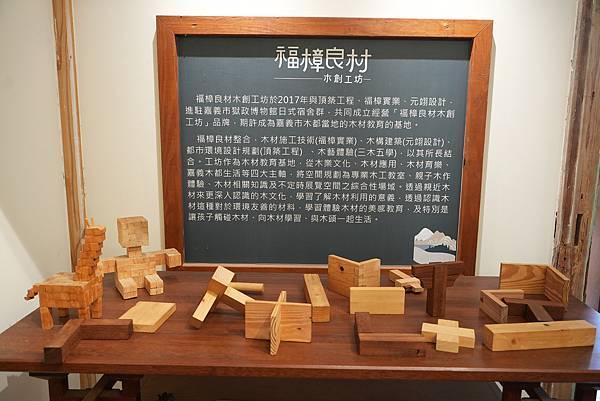 福樟良材
木創工坊
福樟良材木創工坊於2017年與頂築工程、福樟實業、元翊設計,
進駐嘉義市獄政博物館日式宿舍群,共同成立經營「福樟良材木創
工坊」品牌,期許成為嘉義市木都當地的木材教育的基地。
福樟良材整合,木材施工技術(福樟實業)、木構建築(元翊設計)、
都市環境設計規劃(頂築工程)、木藝體驗(三木五學),以其所長結
合。工坊作為木材教育基地,從木業文化、木材應用、木材育樂、
嘉義木都生活等四大主軸,將空間規劃為專業木工教室、親子木作
體驗、木材相關知識及不定時展覽空間之綜合性場域。透過親近木
材來更深入認識的木文化,學習了解木材利用的意義,透過認識木
材這種對於環境友善的材料,學習體驗木材的美感教育,及特別是
讓孩子觸碰木材、向木材學習、與木頭一起生活。